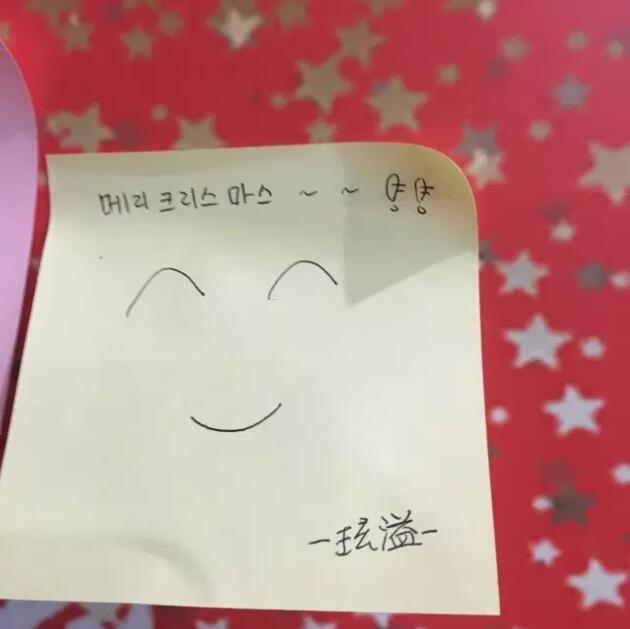 메리크리스마스 ~ ~ 얗얗
-玹溢-